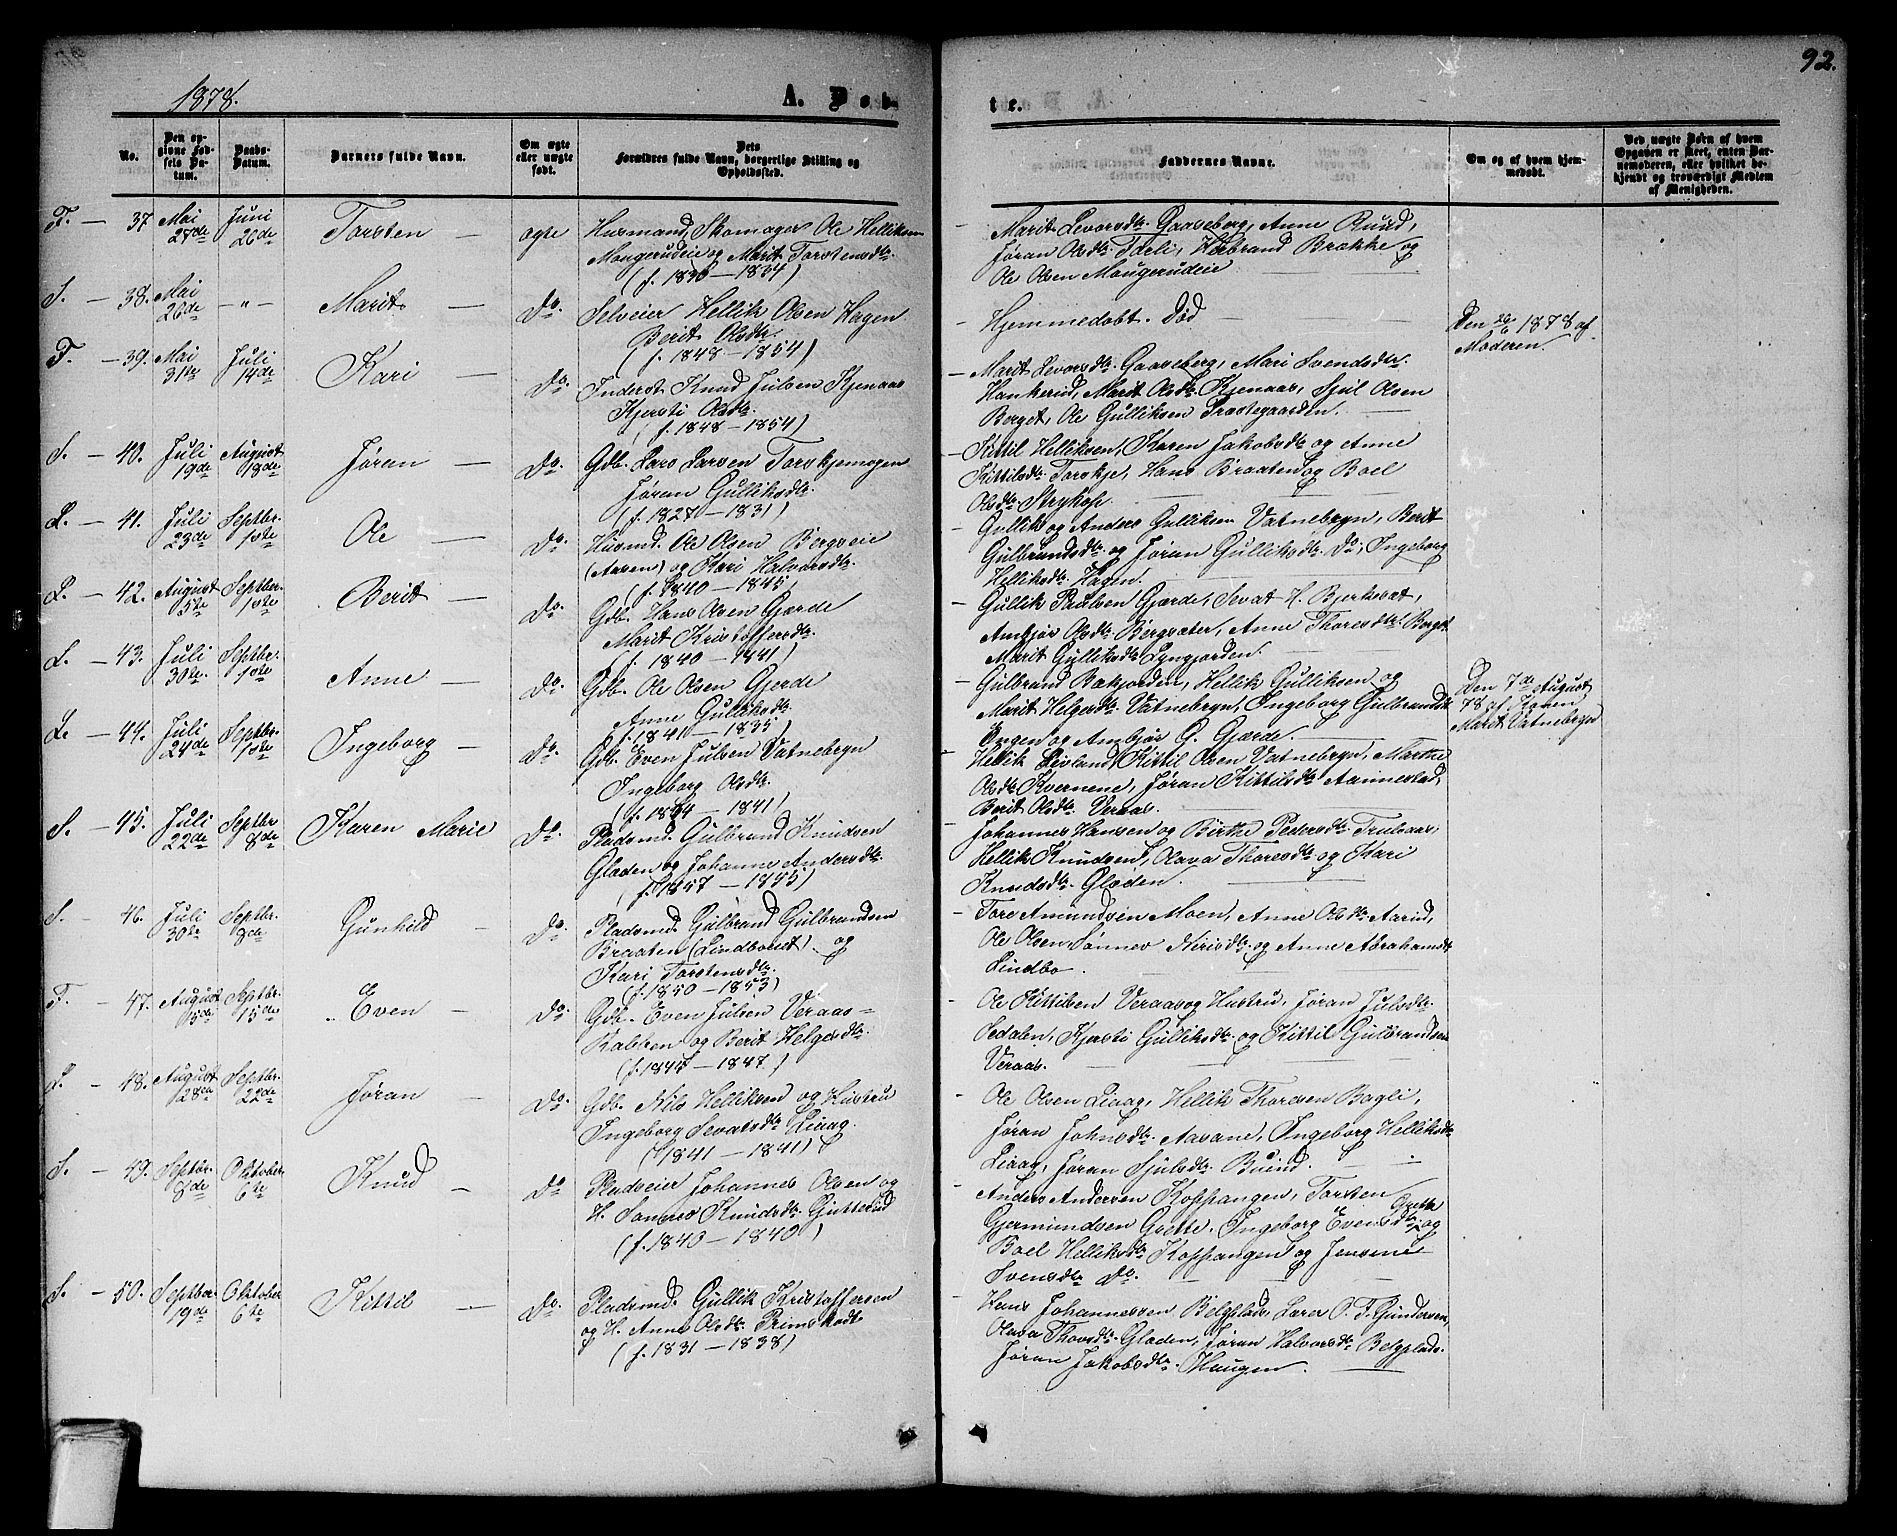 1878.
A. Døb-
te.
92.
No.
Den op-
givne Fød-
sels Da-
tum.
Daabs-
Datum.
Barnets fulde Navn.
Om ægte
eller uægte
født.
Dets
Forældres fulde Navn, borgerlige Stilling og
Opholdssted.
Faddernes Navne.
Om og af hvem hjem-
medøbt.
Ved uægte Børn af hvem
Opgaven er skeet, enten Bar-
nemoderen, eller hvilket be-
kjendt og troværdigt Medlem
af Menigheden.
F. — 37 Mai 27de Juni 26de Torsten — ægte
Husmand, Skomager Ole Helliksen
Maugerudeie og Marit Torstensdtr.
(f. 1830 — 1834)
Marit Levorsdtr. Gaaseberg, Anne Ruud,
Jøran Olsdtr. Tdeli, Herbrand Brække og
Ole Olsen Maugerudeie
S. — 38. Mai 26de — " — Marit — Do.
Selveier Hellik Olsen Hagen
Berit Olsdtr.
(f. 1848 — 1854)
— Hjemmedøbt. Død —
Den 26/6 1878 af
Moderen.
F. — 39. Mai 31te Juli 14de Kari — Do.
Inderst. Knud Julsen Kjenaas
Kjersti Olsdtr.
(f. 1848 — 1854)
— Marit Levorsdtr. Gaaseberg, Mari Svendsdtr.
Hankerud, Marit Olsdtr. Kjenaas, Sjul Olsen
Berget, Ole Gulliksen Præstegaarden. —
S. — 40. Juli 19de August 18de Jøran — Do.
Gdb. Lars Larsen Torskjemogen
Jøran Gulliksdtr.
(f. 1827 — 1831)
— Kittil Helliksen, Karen Jakobsdtr. og Anne
Kittilsdtr. Torskje, Hans Braaten og Boel
Olsdtr. Strykop.
L. — 41. Juli 23de Septbr. 1ste Ole — Do.
Husmd. Ole Olsen Bergseie
(Aasen) og Kari Halvorsdtr.
(f. 1840 — 1845)
— Gullik og Anders Gulliksen Vatnebryn, Berit
Gulbrandsdtr. og Jøran Gulliksdtr. Do., Ingeborg
Helliksdtr. Hagen.
L. — 42. August 5te Septber. 1ste Berit — Do.
Gdb. Hans Olsen Gjærde
Marit Kristoffersdtr.
(f. 1840 — 1841)
— Gullik Paulsen Gjærde, Sevat H. Bjerkesæt,
Ambjør Olsdtr. Bergsæter, Anne Thoresdtr. Berget
Marit Gulliksdtr. Lyngjorden.
L. — 43. Juli 30te. Septbr. 1ste Anne — Do.
Gdb. Ole Olsen Gjerde
Anne Gulliksdtr.
(f. 1841 — 1835)
— Gulbrand Bækjorden, Hellik Gulliksen og
Marit Helgesdtr. Vatnebryn, Ingeborg Gulbrandsdtr.
Engen og Ambjør O. Gjærde.
Den 7de August
78 af Konen
Marit Vatnebryn
L. — 44. Juli 24de Septbr. 1ste Ingeborg — Do.
Gdb. Even Julsen Vatnebryn
Ingeborg Olsdtr.
(f. 1844 — 1841)
— Hellik Lisland, Kittil Olsen Vatnebryn, Marthe
Olsdtr. Kvernene, Jøran Kittilsdtr. Aannestad,
Berit Olsdtr. Veraas.
S. — 45. Juli 22de Septbr 8de Karen Marie Do.
Pladsmd. Gulbrand Knudsen
Gladen og Johanne Andersdtr.
(f. 1857 — 1855)
Johannes Hansen og Birthe Pedersdtr. Trulsaas,
Hellik Knudsen, Olava Thoresdtr. og Kari
Knudsdtr. Gladen.
S. — 46. Juli 30te Septbr. 8de Gunhild — Do.
Pladsmd. Gulbrand Gulbrandsen
Braaten (Lindboriet) og
Kari Torstensdtr.
(f. 1850 — 1853)
— Tore Amundsen Moen, Anne Olsdtr. Aarud,
Ole Olsen Sønnev Nirisdtr. og Anne Abrahamsdtr
Lindbo.
F. — 47. August 15de Septbr. 15de Even — Do.
Gdb. Even Julsen Veraas-
Kabben og Berit Helgesdtr.
(f. 1844 — 1847)
— Ole Kittilsen Veraas og Hustru, Jøran Julsdtr.
Sedalen, Kjersti Gulliksdtr. og Kittil Gulbrandsen
Veraas.
L. — 48. August 28de Septbr. 22de Jøran — Do.
Gdb. Nils Helliksen og Hustru
Ingeborg Sevatsdtr. Liaag.
(1841 — 1841)
— Ole Olsen Liaag, Hellik Thordsen Bagli,
Jøran Johnsdtr. Aasane, Ingeborg Helliksdtr.
Liaag, Jøran Sjulsdtr. Buind.
S. — 49. Septbr. 8de Oktober 6te Knud — Do
Pladseier Johannes Olsen og
H. Sønnev Knudsdtr. Gutterud
(f. 1840 — 1840)
— Anders Andersen Koppangen, Torsten
Gjermundsen Gvette, Ingeborg Evensdtr. Gvette og
Boel Helliksdtr. Koppangen og Jensene
Svensdtr. Do.
S. — 50. Septber. 19de Oktober 6te Kittil — Do.
Pladsmd. Gullik Kristoffersen
og H. Anne Olsdtr. Primstadt
(f. 1831 — 1838)
— Hans Johannesen Belgplads, Lærer O. T. Gundersen,
Olava Thorsdtr. Gladen, Jøran Halvorsdtr. Belgplads.
Jøran Jakobsdtr. Haugen.